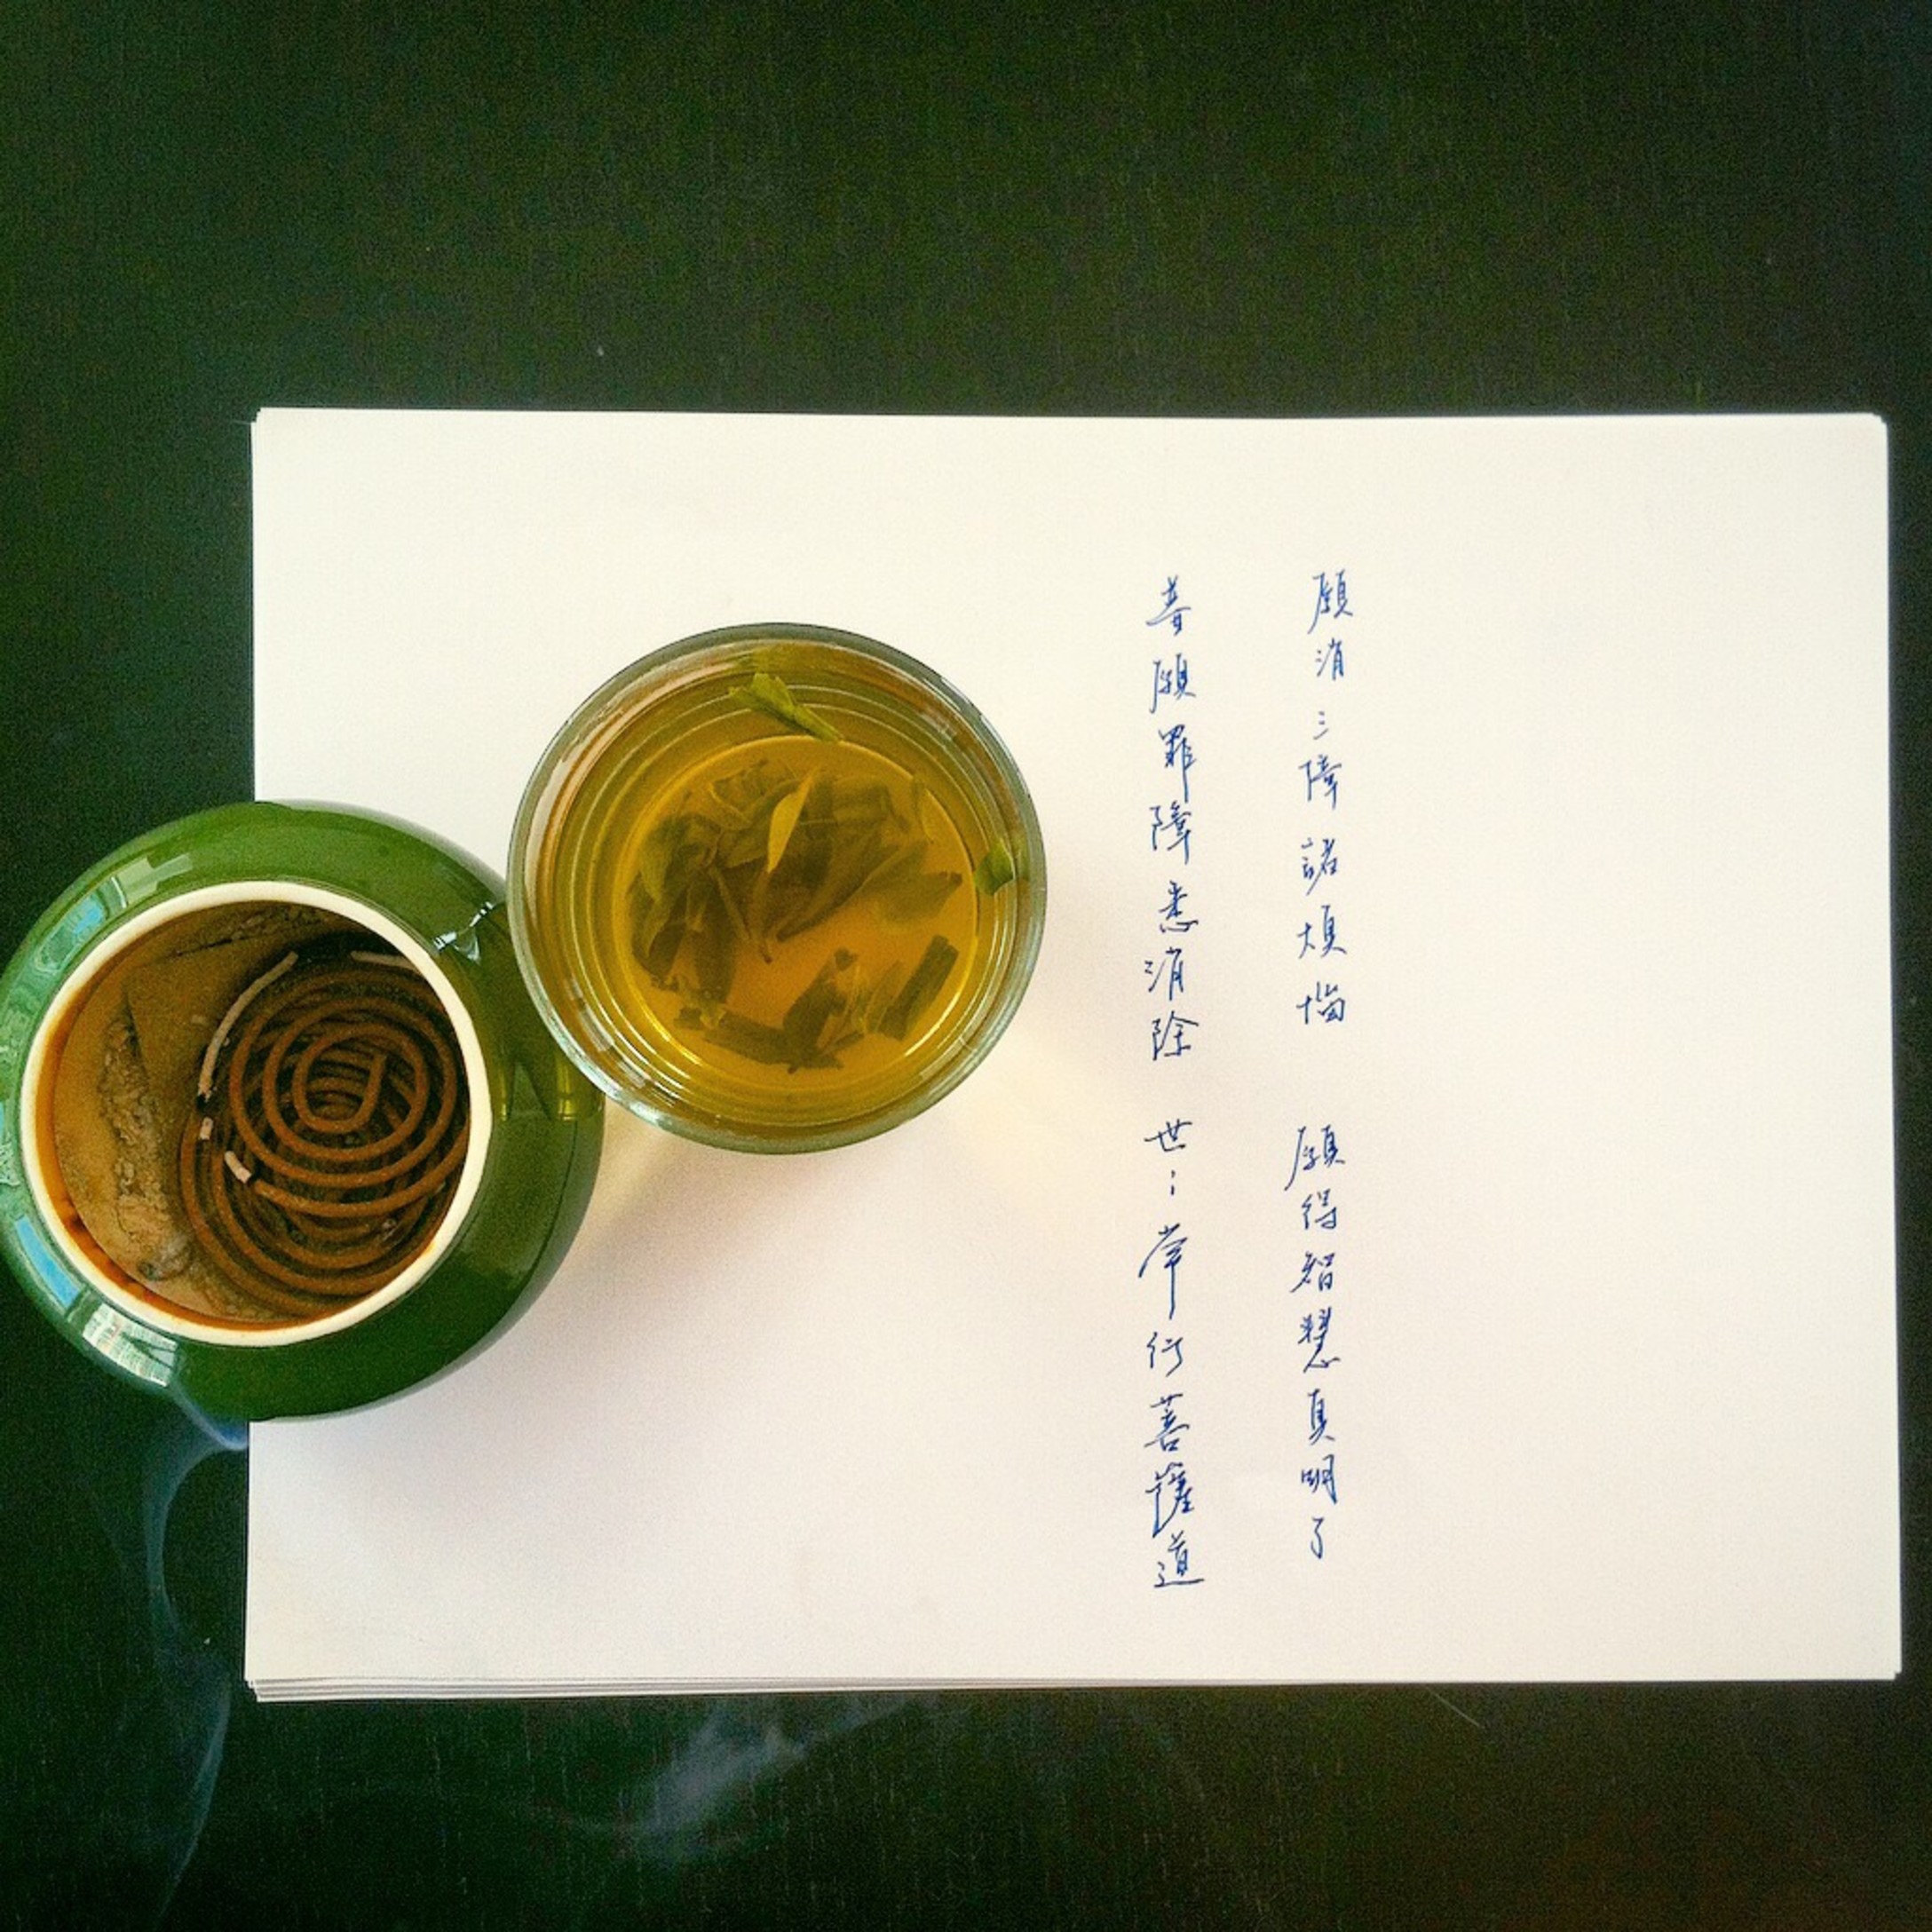 願消三障諸煩惱 願得智慧真明了
普願罪障悉消除 世〻常行菩薩道